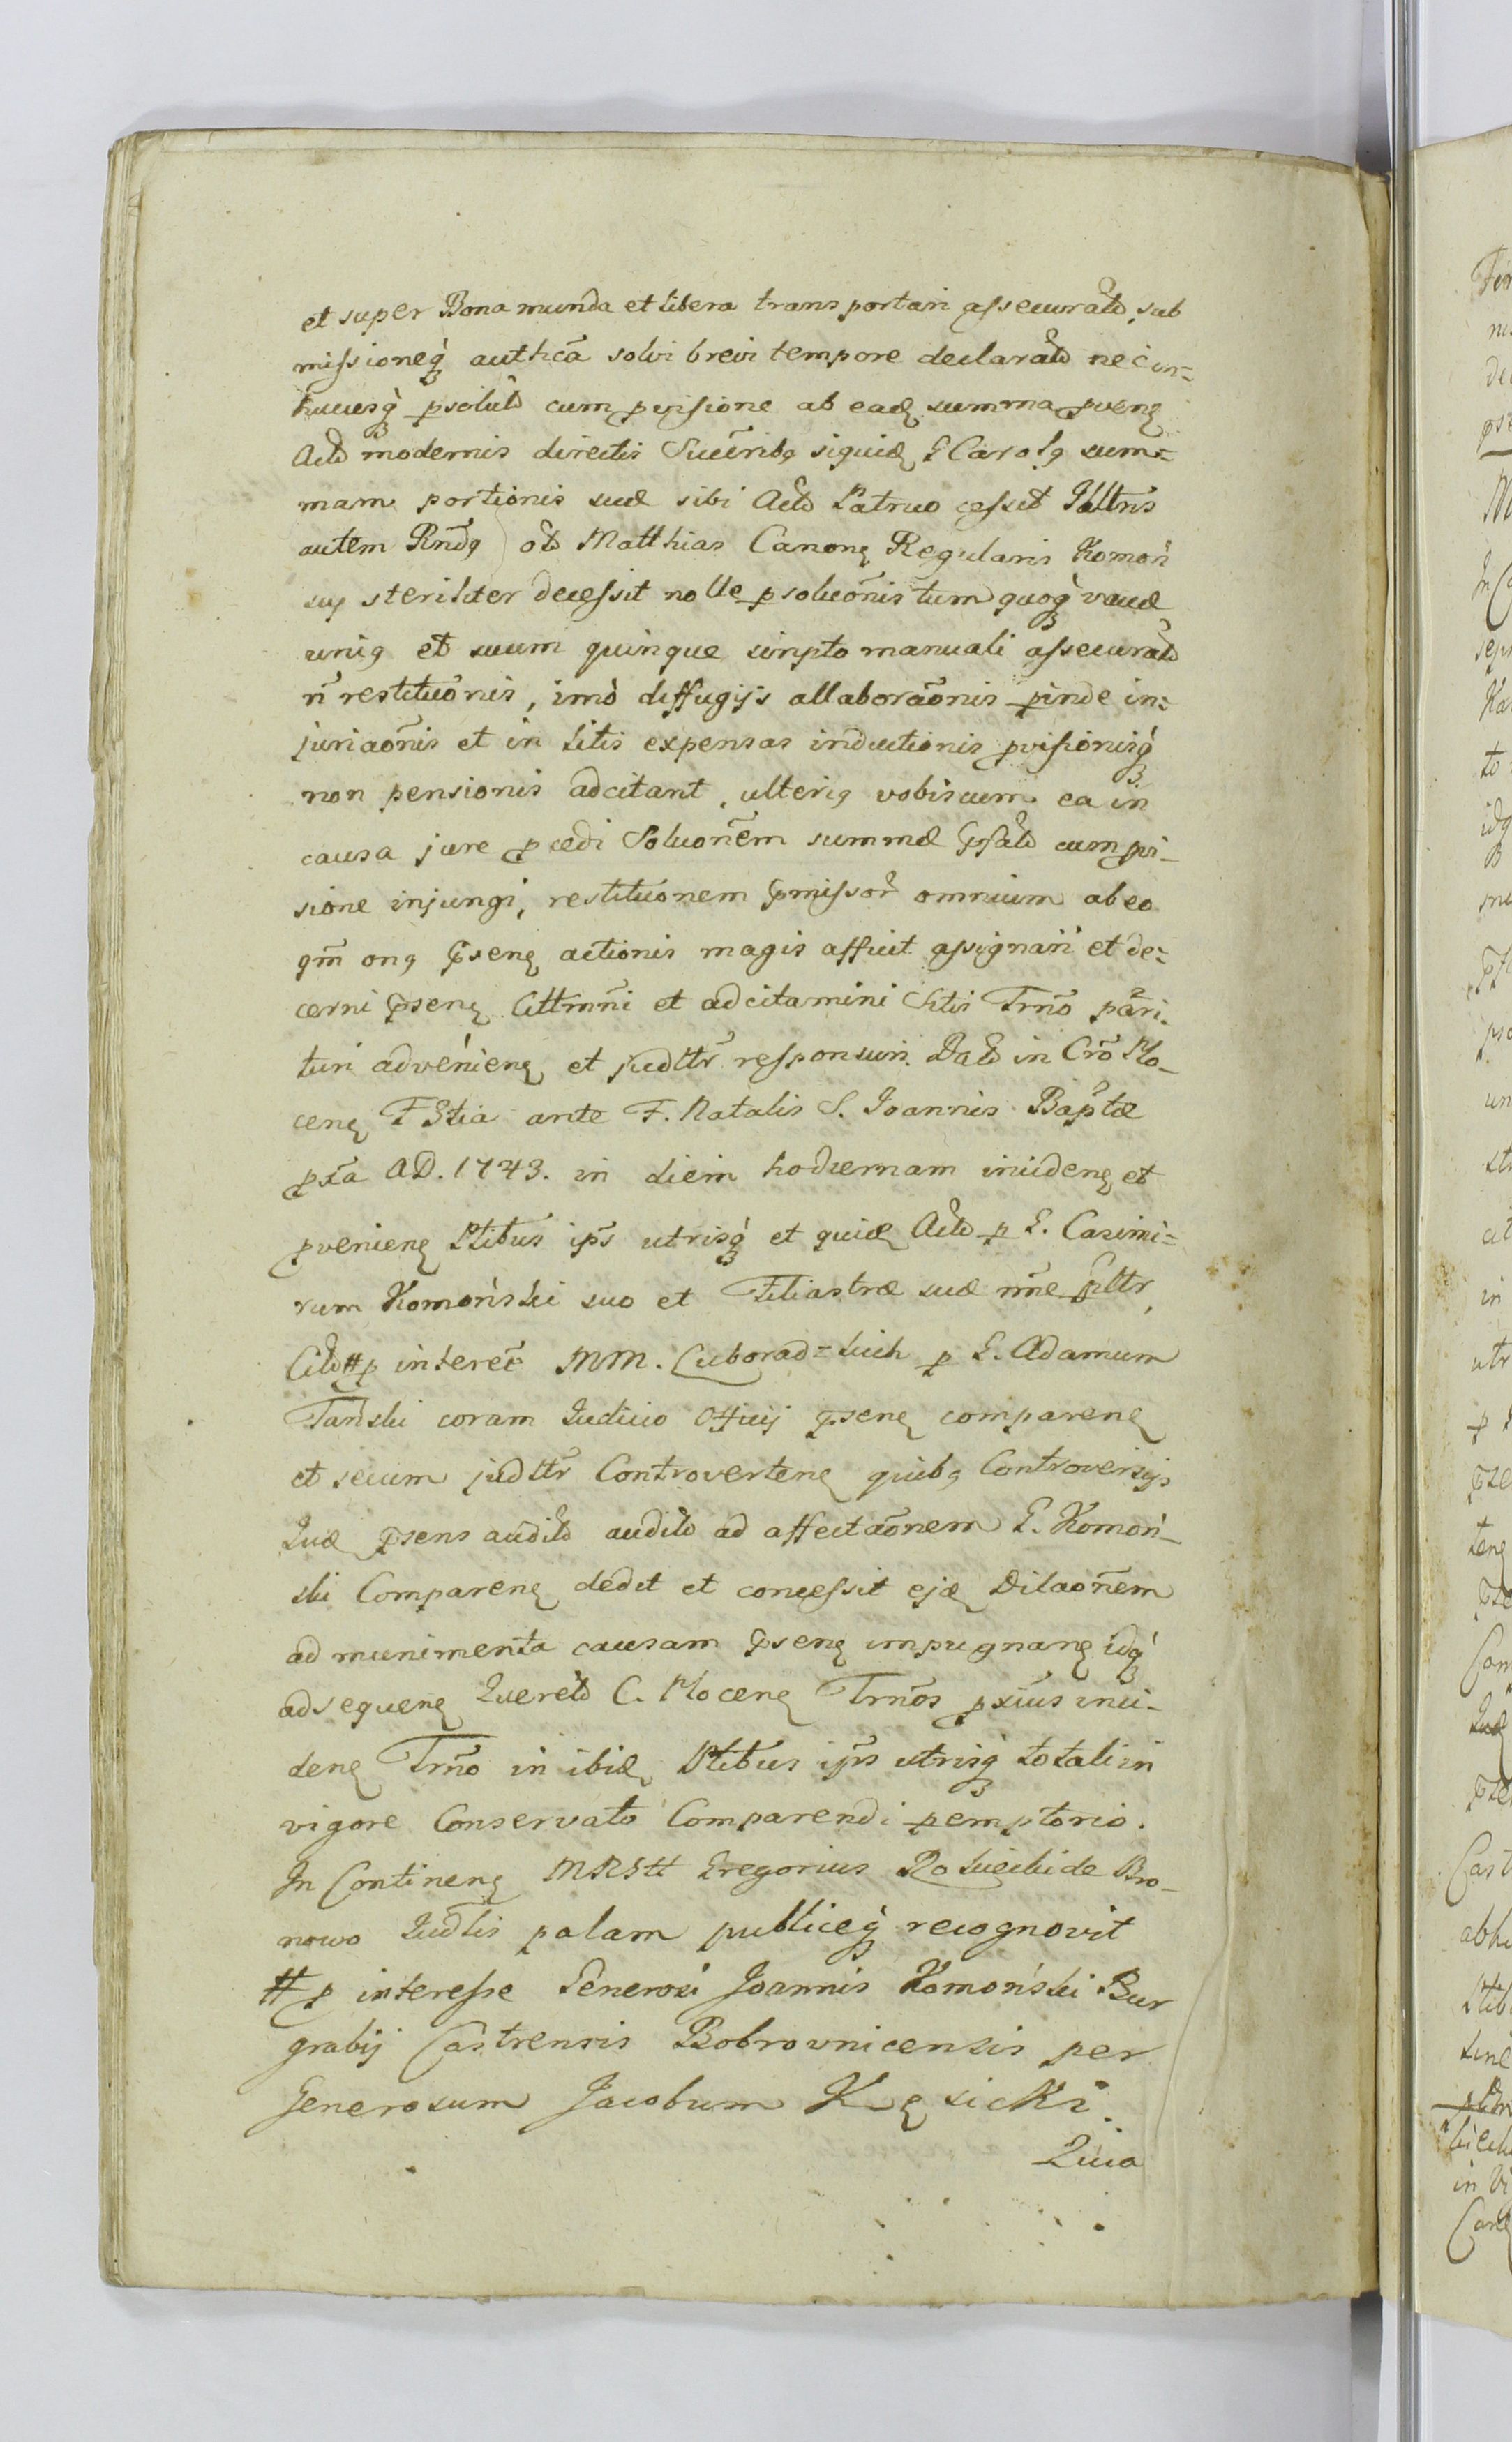 et super Bona munda et libera trans portari assecurato, sub
missioneq̃ authcã solvi brevi tempore declarato nec in=
hucusq̃ psolut cum pvisione ab eadę summa pvenę
Acto modernis directis Succribq siquidę G Carolq sum=
mam portionis suæ sibi Acto Patruo cessit Illtris
autem Rndq olt Matthias Canonę Regularis Komoń
sq steriliter decessit nolle psoluõnis tum quoq̃ vaccæ
uniq et suum quinque scripto manuali assecurato
ñ restituõnis, imò diffugijs allaboraõnis pinde in=
juriaõnis et in Litis expensas inductionis pvisionisq̃
non pensionis adcitant, ulteriq vobiscum ea in
causa jure pcedi Soluoñem summæ pfato cum pvi-
sione injungi, restituonem pmissor omnium ab eo
qm̃ onq psenę actionis magis afficit assignari et de=
cerni psenę Cittmñi et adcitamini Sitis Trmõ pãri.
turi advenienę et judltr responsuri. Dato in Crõ Plo-
cenę F 3tia ante F. Natalis S. Joannis Baptæ
pxa AD. 1743. in diem hodiernam incidenę et
pvenienę Ptibus ips utrisq̃ et quidę Acto p G. Casimi=
rum Komoński suo et Filiastræ suæ nñe psltr,
Cito # p intereẽ MM. Luborad=kich p G. Adamum
Tański coram Judicio Officij psenę comparenę
et secum judltr Controvertenę quibq Controversijs
Jud psens audito audito ad affectaõnem G. Komoń-
ski Comparenę dedit et concessit ejdę Dilaoñem
ad munimenta causam psenę impugnanę idq̃
adsequenę Querelo C. Plocenę Trmos pxius inci-
denę Trmõ in ibidę Ptibus ips utrisq̃ totali in
vigore Conservato Comparendi pemptorio.
In Continenę MRStt Gregorius Rokicki de Bro-
nowo Judlis palam publiceq̃ recognovit
# p interesse Generosi Joannis Komoński Bur
grabij Castrensis Bobrovnicensis per
Generosum Jacobum Kęsicki.
Quia